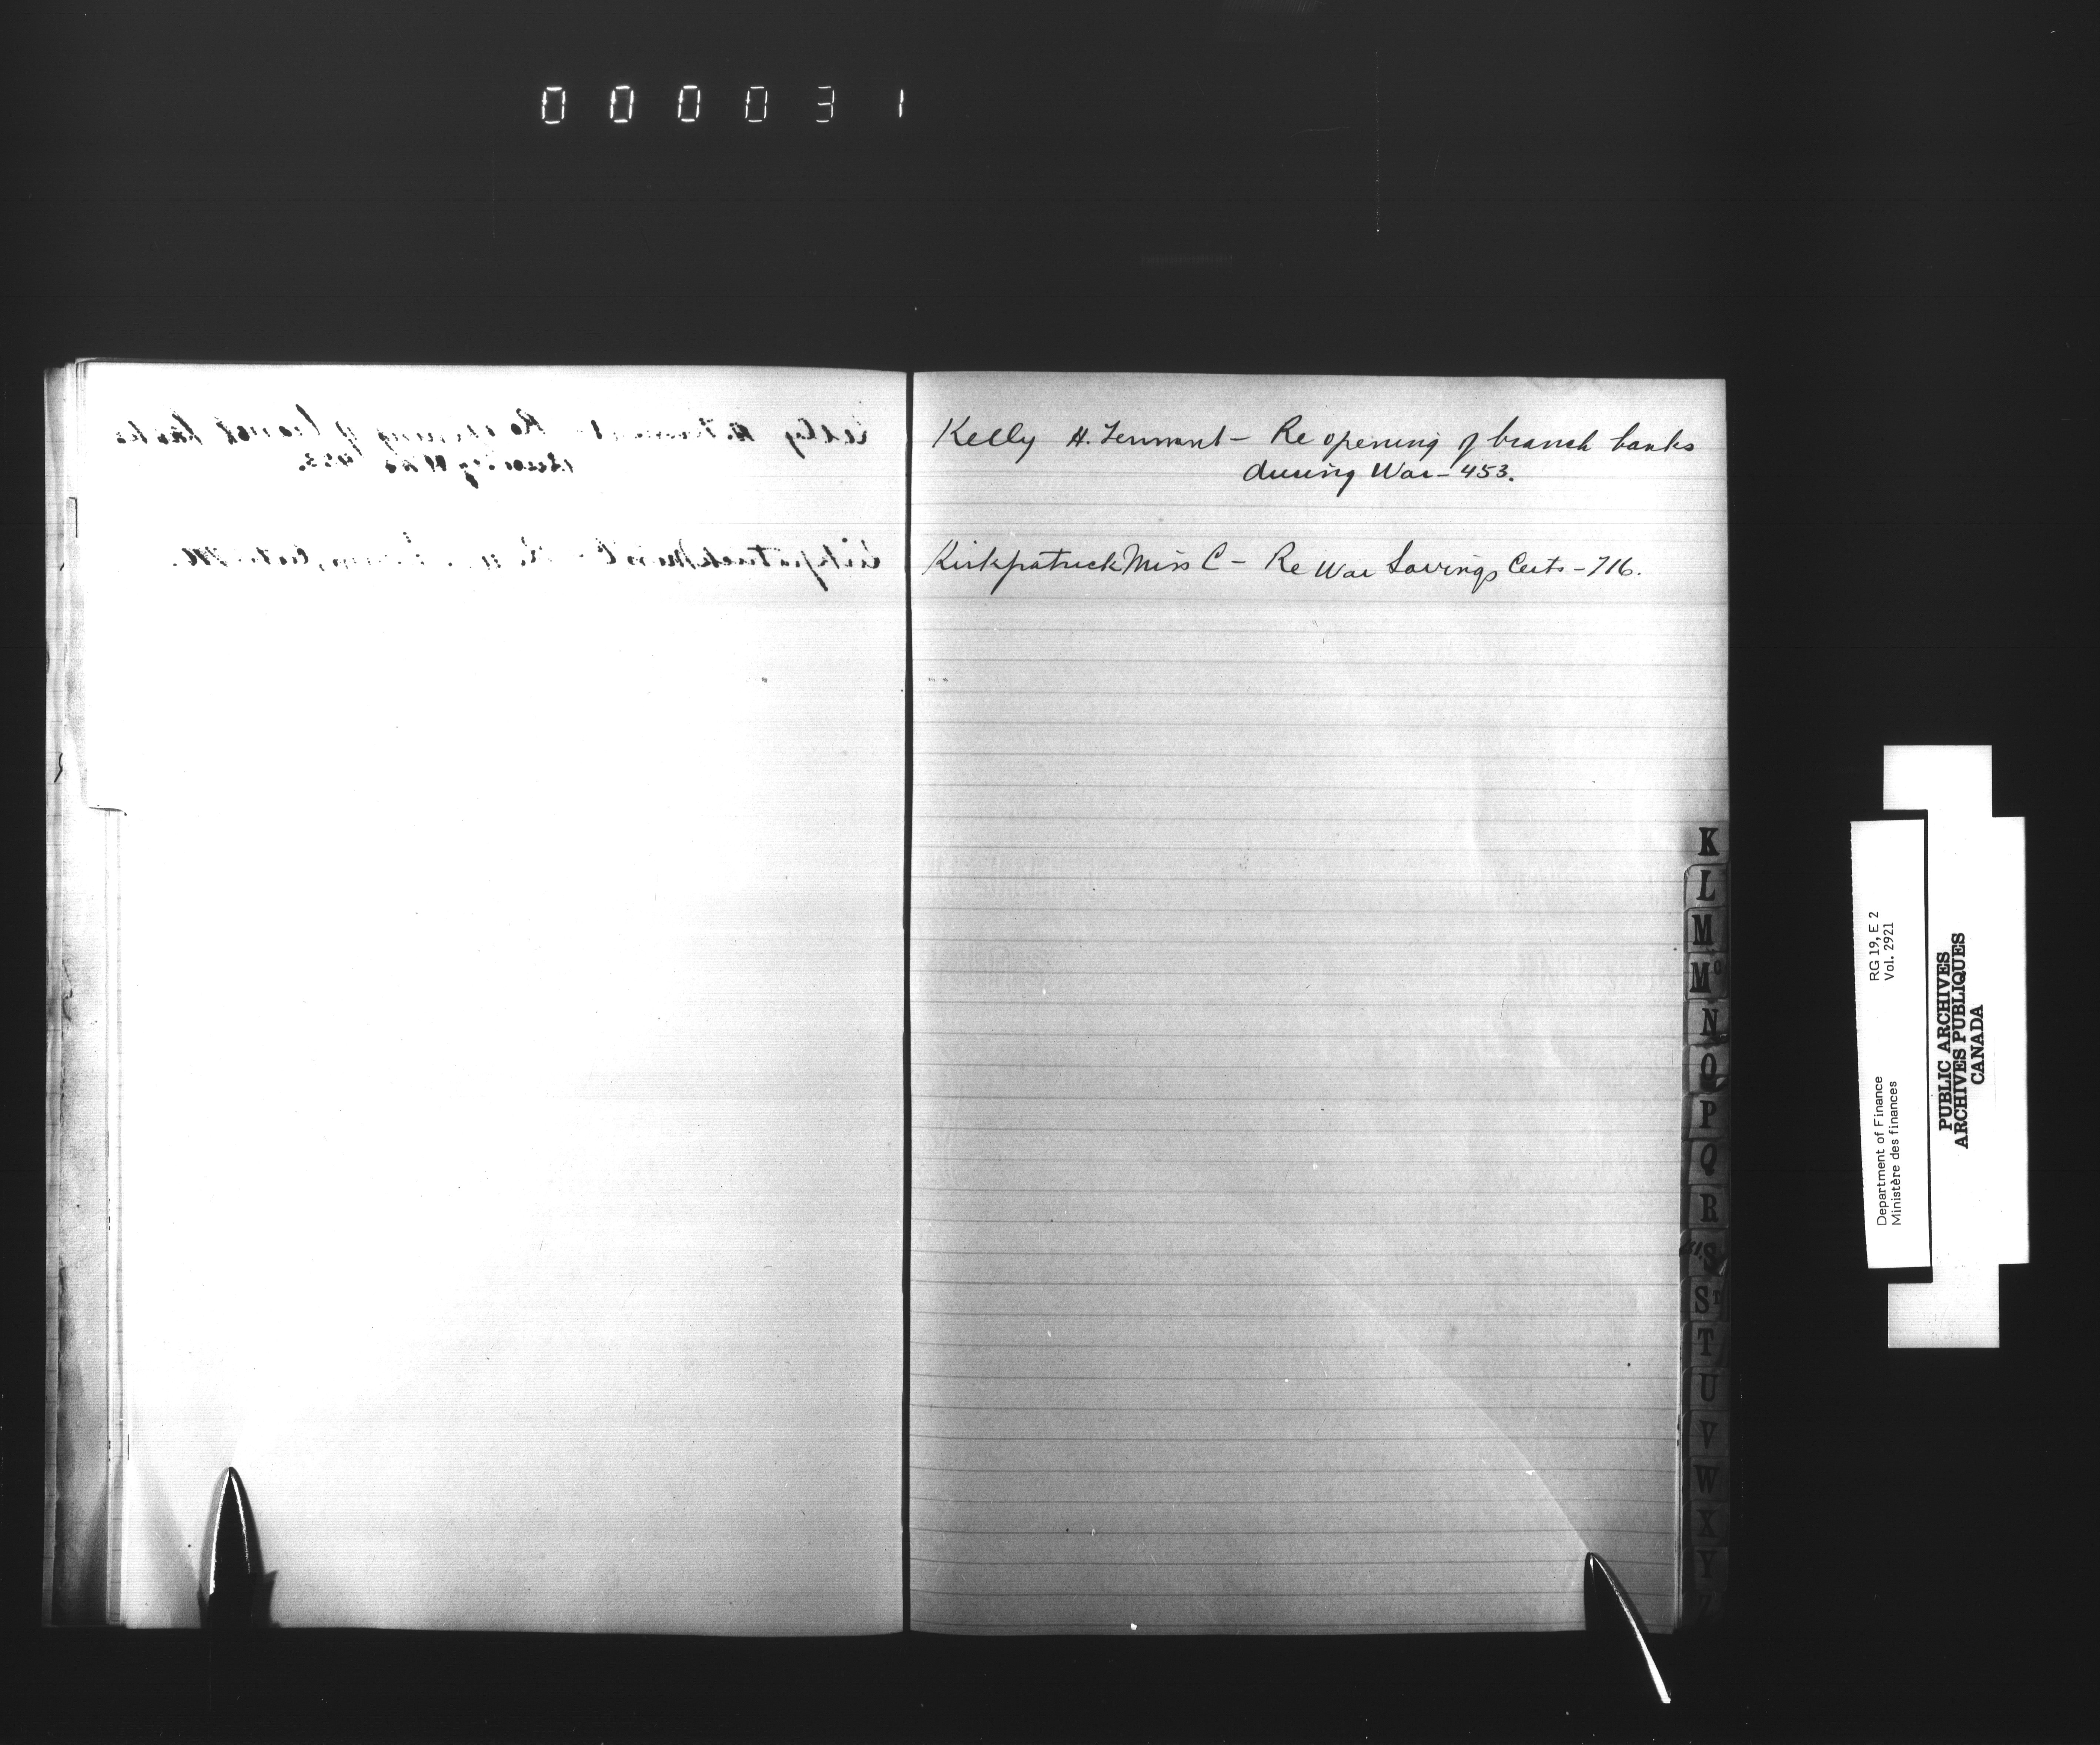 000031
Kelly H. Tennant - Re opening of branch banks
during War - 453.
Kirkpatrick Miss C - Re War Savings Certs - 716.
K
L
M
Mc
N
O
P
Q
R
S
St
T
U
V
W
X
Y
Z
Department of Finance RG 19, E 2
Ministère des finances Vol. 2921
PUBLIC ARCHIVES
ARCHIVES PUBLIQUES
CANADA